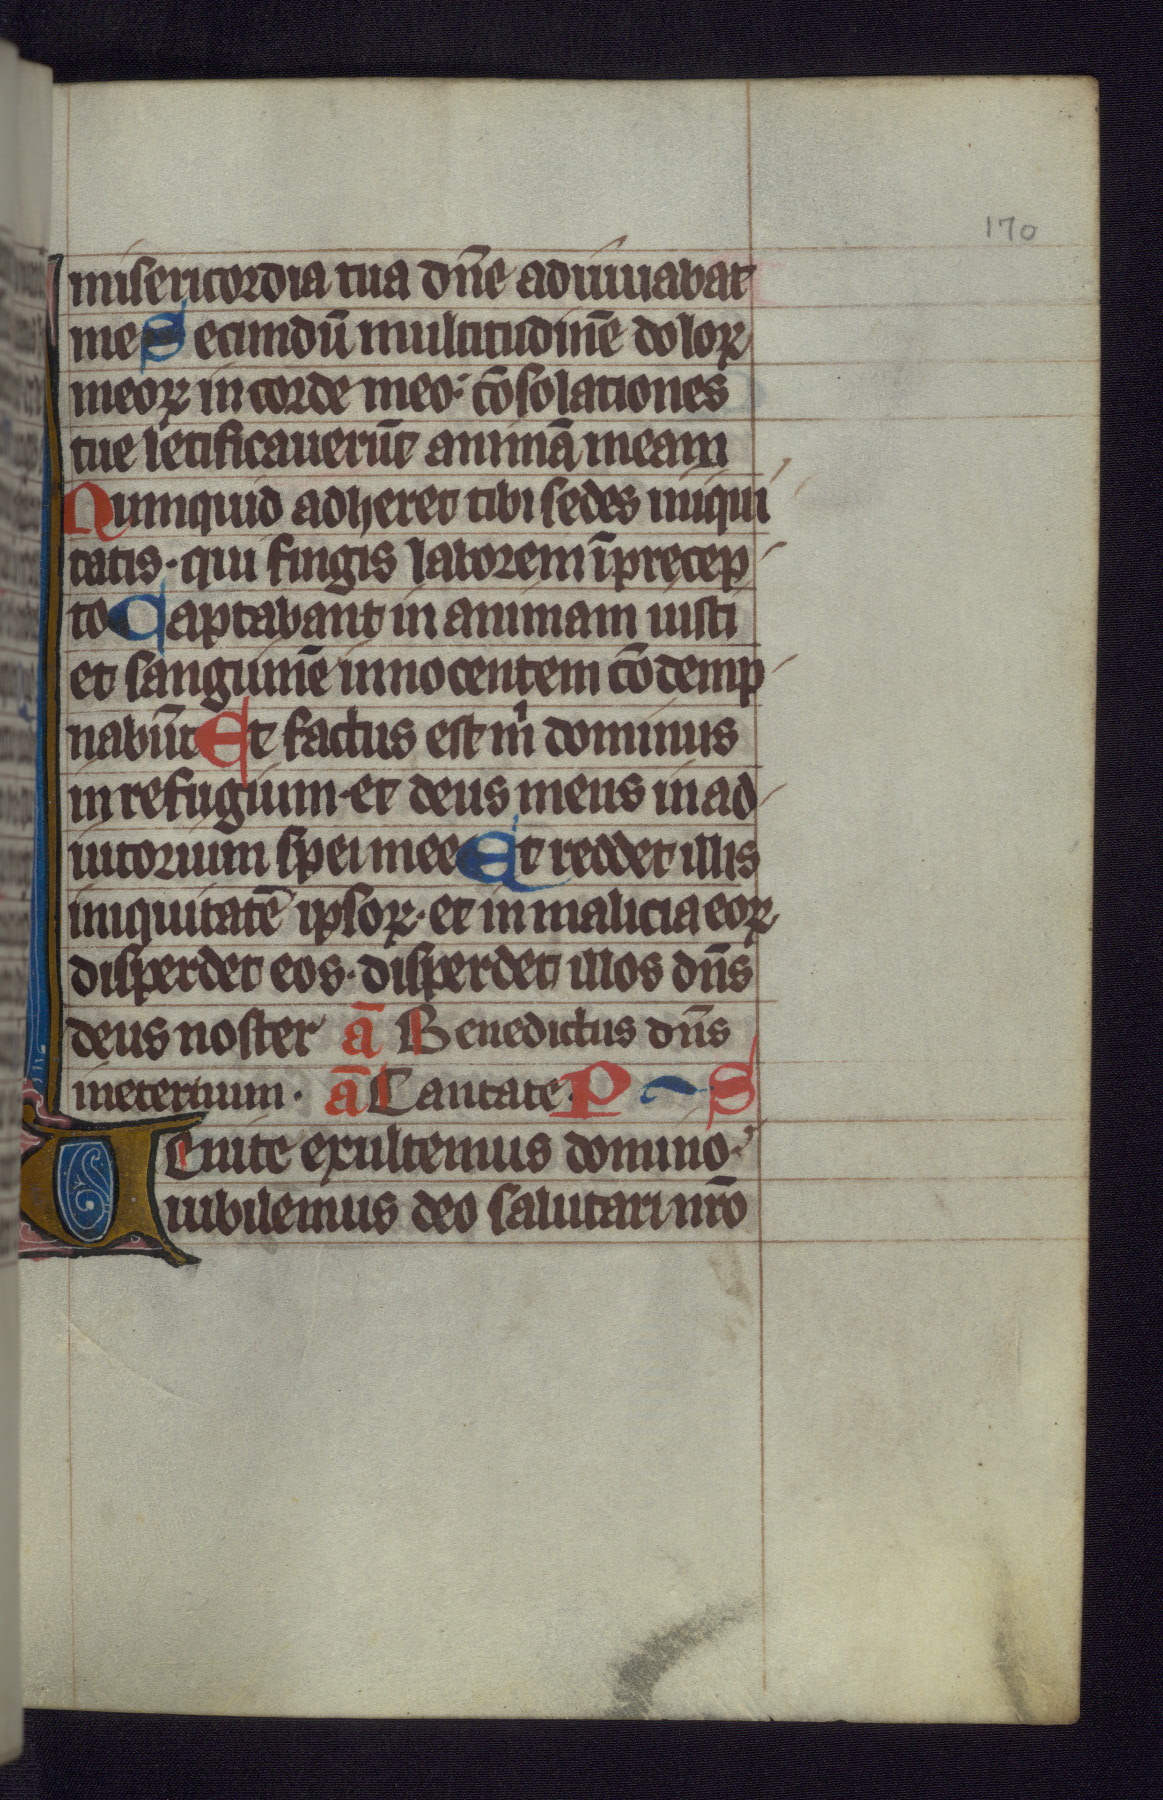 170
misericordia tua dn̄e adiuuabat
me Secundū multitudinē doloꝝ
meoꝝ in corde meo· cōsolationes
tue letificauerūt animā meam
Numquid adheret tibi sedes iniqui
tatis· qui fingis laborem ī precep
to Captabant in animam iusti
et sanguinē innocentem cōdemp
nabūt Et factus est m̄ dominus
in refugium· et deus meus in ad
iutorium spei mee Et reddet illis
iniquitatē ipsoꝝ· et in malicia eoꝝ
disperdet eos· disperdet illos dn̄s
deus noster ā Benedictus dn̄s
ineternum· ā Cantate· P S
Uenite exultemus domino·
iubilemus deo salutari nr̄o